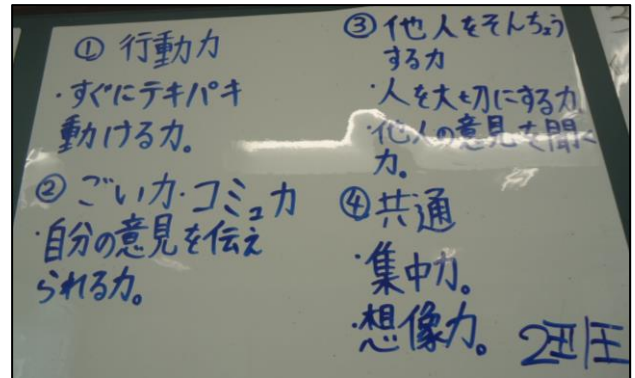 ① 行動力
・すぐにテキパキ
動ける力。
② ごい力・コミュ力
・自分の意見を伝え
られる力。
③ 他人をそんちょう
する力
・人を大切にする力
・他人の意見を聞く
力。
④ 共通
・集中力。
・想像力。
2班